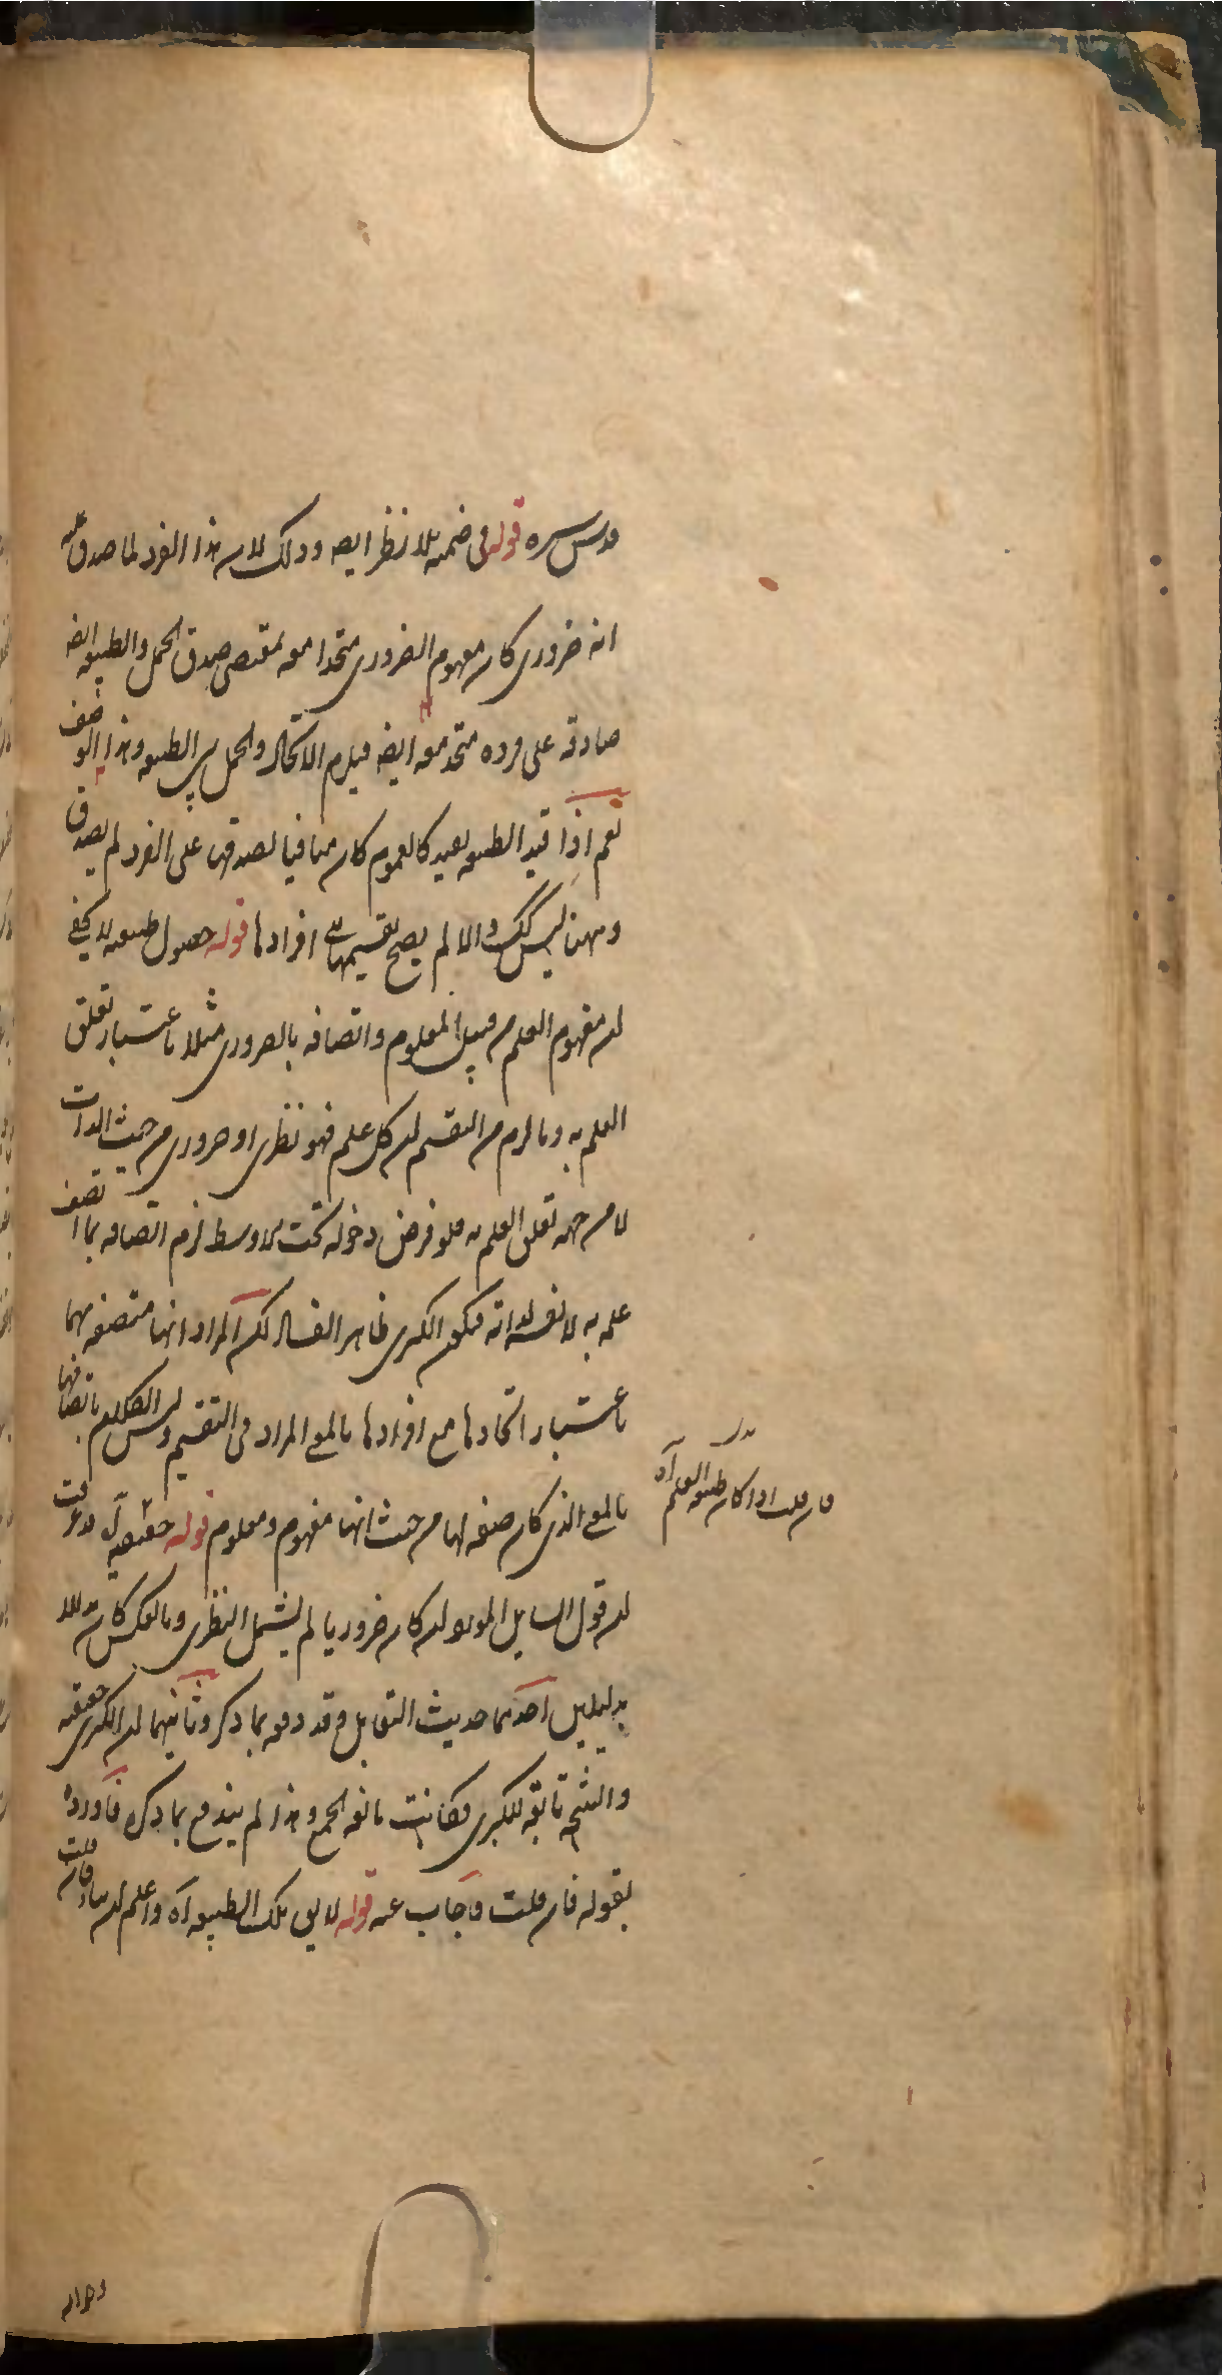 قدس سره قوله في ضمنه بلا نظر ايضا وذلك لان هذا الفرد لما صدق عليه
انه ضروري كان مفهوم الضروري متحدا معه بمقتضى صدق الحمل والطبيعه ايضا
صادقه على فرده متحد معه ايضا فيلزم الاتحاد والحمل بين الطبيعه وهذا الوصف
نعم اذا قيد الطبيعه بقيد كالعموم كان منافيا لصدقها على الفرد لم يصدق
وههنا ليس كك والا لم يصح تقسيمها الى افرادها قوله حصول طبيعه لا يخفى
ان مفهوم العلم من قبيل المعلوم واتصافه بالضروري مثلا باعتبار تعلق
العلم به وما لزم من التقسيم ان كل علم فهو نظري او ضروري من حيث الذات
لا من جهه تعلق العلم به فلو فرض دخوله تحت الاوسط لزم اتصافه بما اتصف
علمه به لا نفسه لذاته فيكون الكبرى ظاهر الفساد لكن المراد انها متصفه بهما
باعتبار اتحادها مع افرادها بالمعنى المراد في التقسيم وليس الكلام باتصافها
بالمعنى الذي كان صفه لها من حيث انها مفهوم ومعلوم قوله حقيقيه آه قد عرفت
ان قول السايل المورد ان كان ضروريا لم يشمل النظري وبالعكس كان
بدليلين احدهما حديث التقابل وقد دفعه بما ذكر وثانيهما ان الكبرى حقيقيه
والنتيجه تابعه للكبرى فكانت مانعه الجمع وهذا لم يندفع بما ذكره فاورده
بقوله فان قلت فاجاب عنه قوله لا يق تلك الطبيعه آه واعلم ان فان قلت
فان قلت اذا كان طبيعه العلم آه